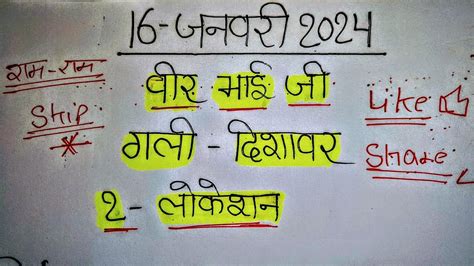 16-जनवरी 2024
राम-राम
वीर भाई जी
Like
Ship
गली - दिशावर
Share
2- लोकेशन